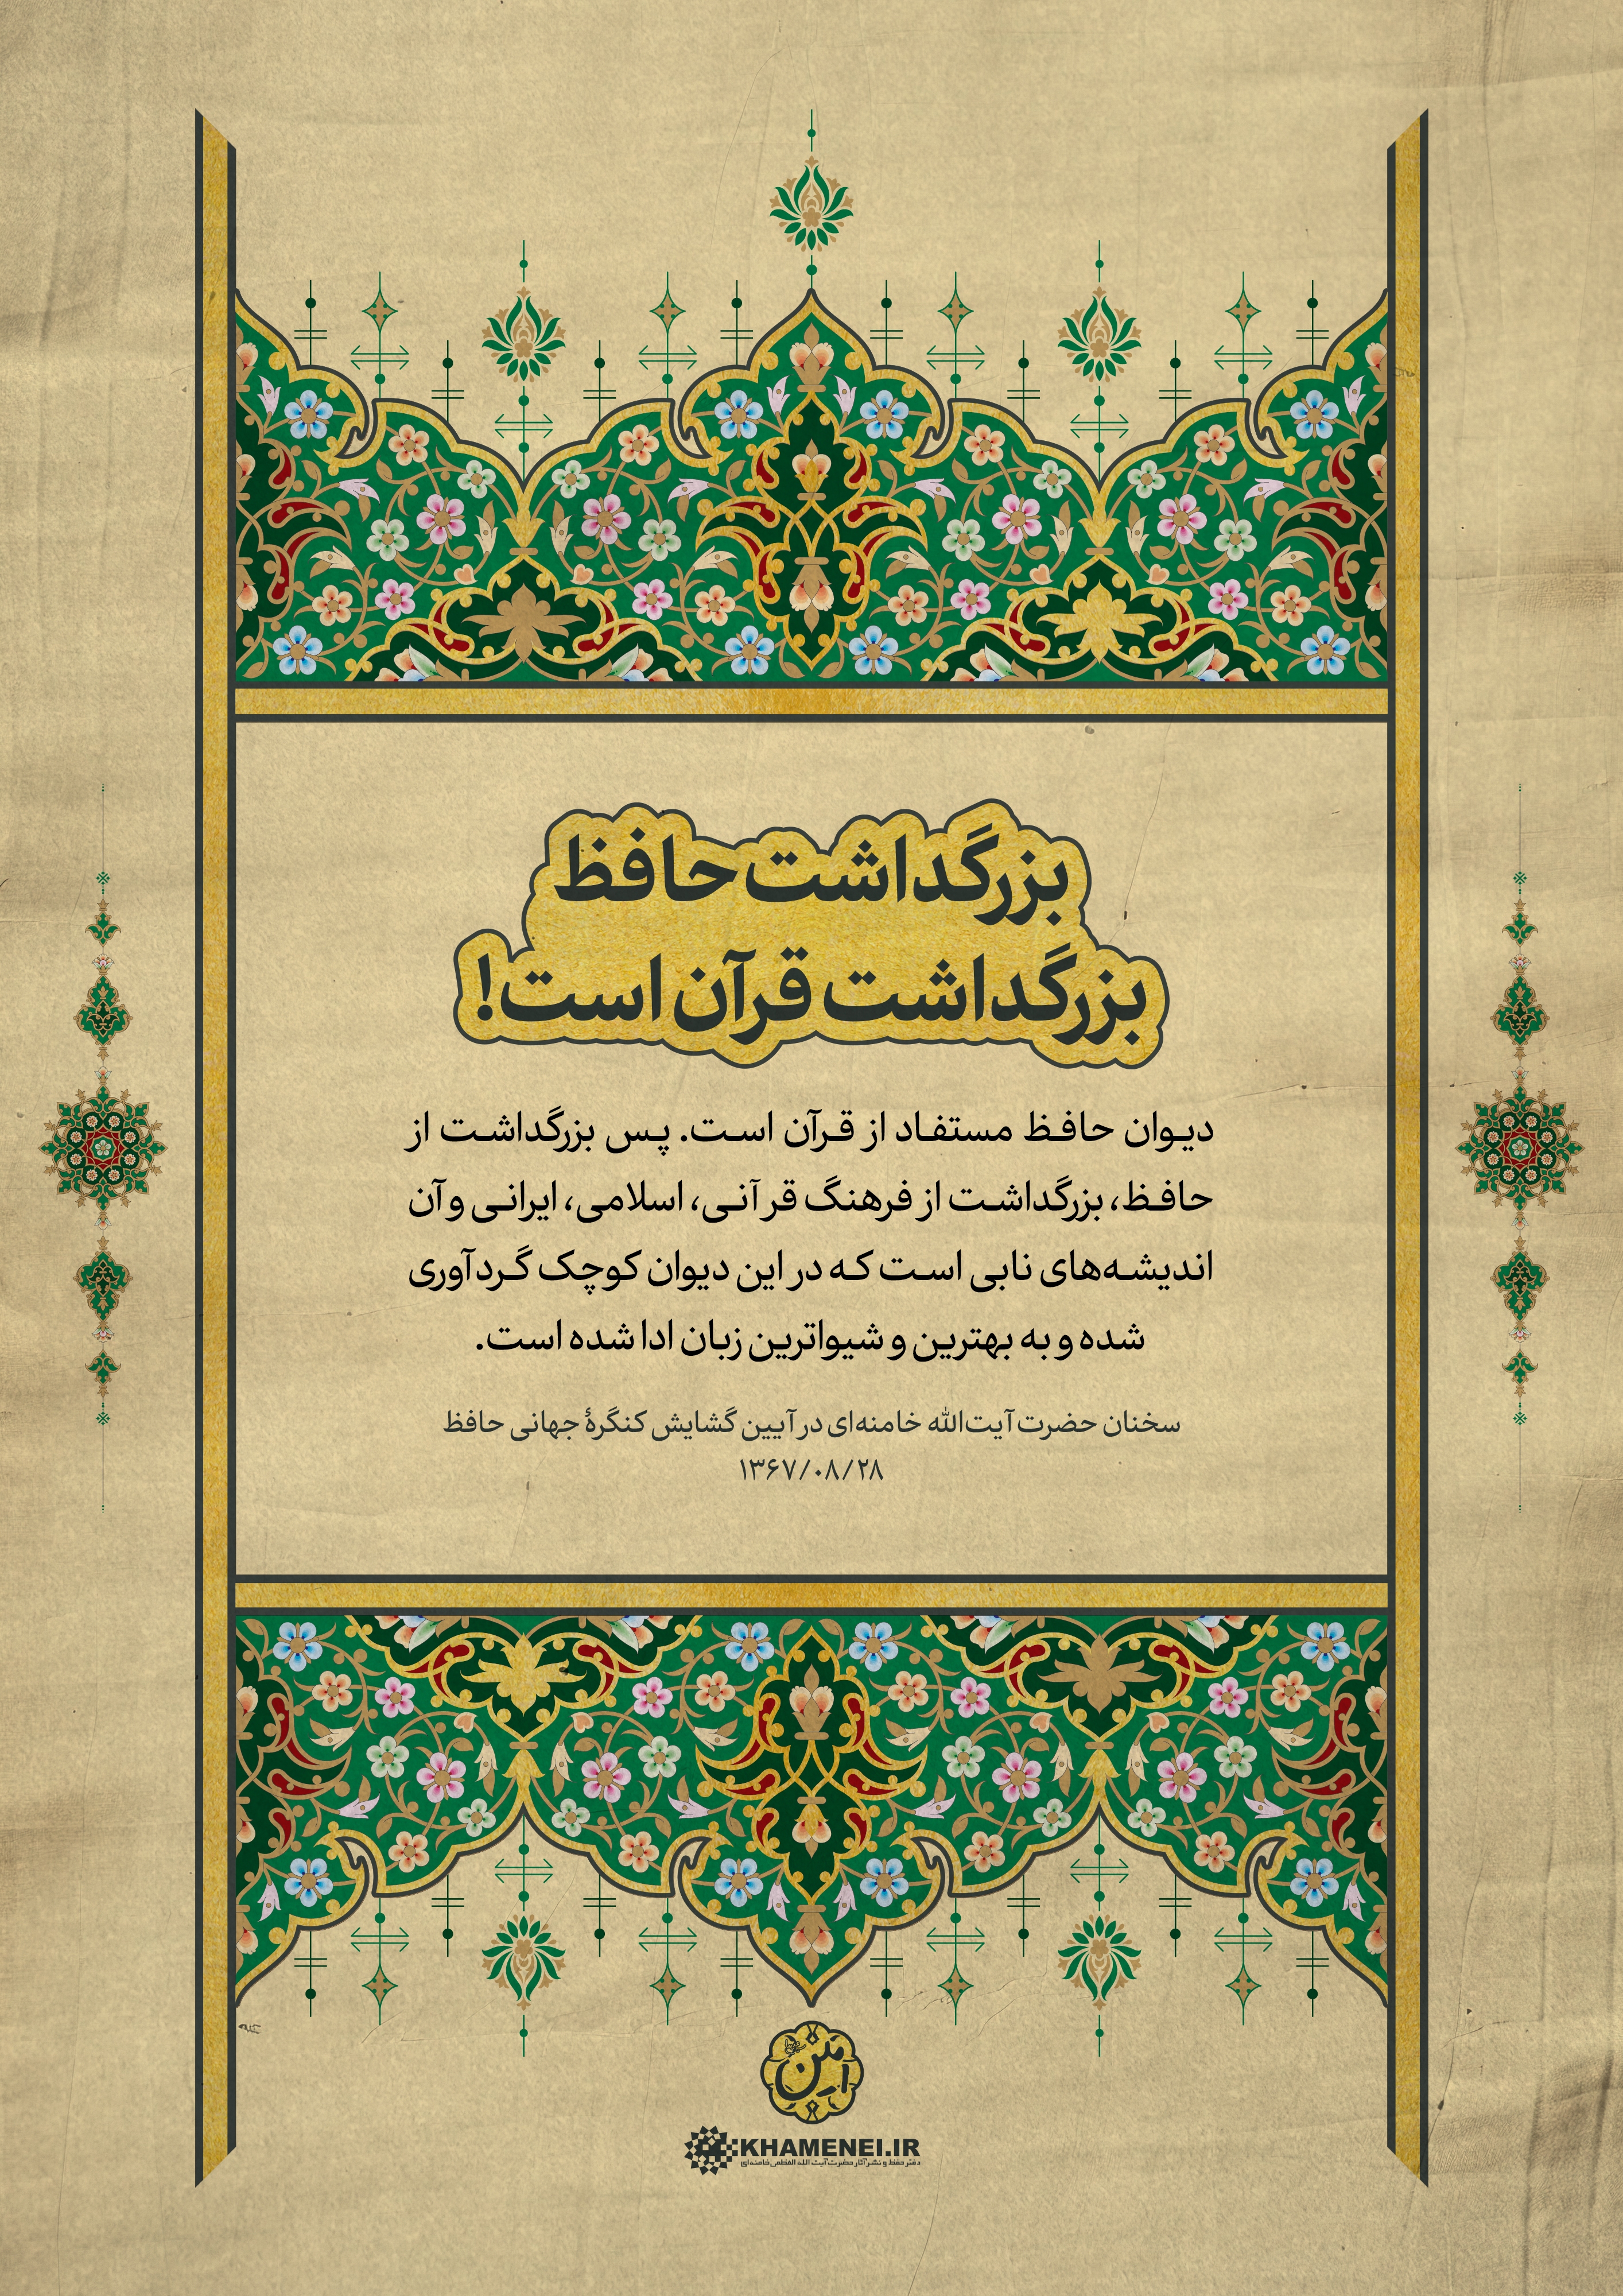 بزرگداشت حافظ
بزرگداشت قرآن است!
دیوان حافظ مستفاد از قرآن است. پس بزرگداشت از
حافظ، بزرگداشت از فرهنگ قرآنی، اسلامی، ایرانی و آن
اندیشه‌های نابی است که در این دیوان کوچک گردآوری
شده و به بهترین و شیواترین زبان ادا شده است.
سخنان حضرت آیت‌الله خامنه‌ای در آیین گشایش کنگرهٔ جهانی حافظ
۱۳۶۷/۰۸/۲۸
KHAMENEI.IR
دفتر حفظ و نشر آثار حضرت آیت الله العظمی خامنه‌ای